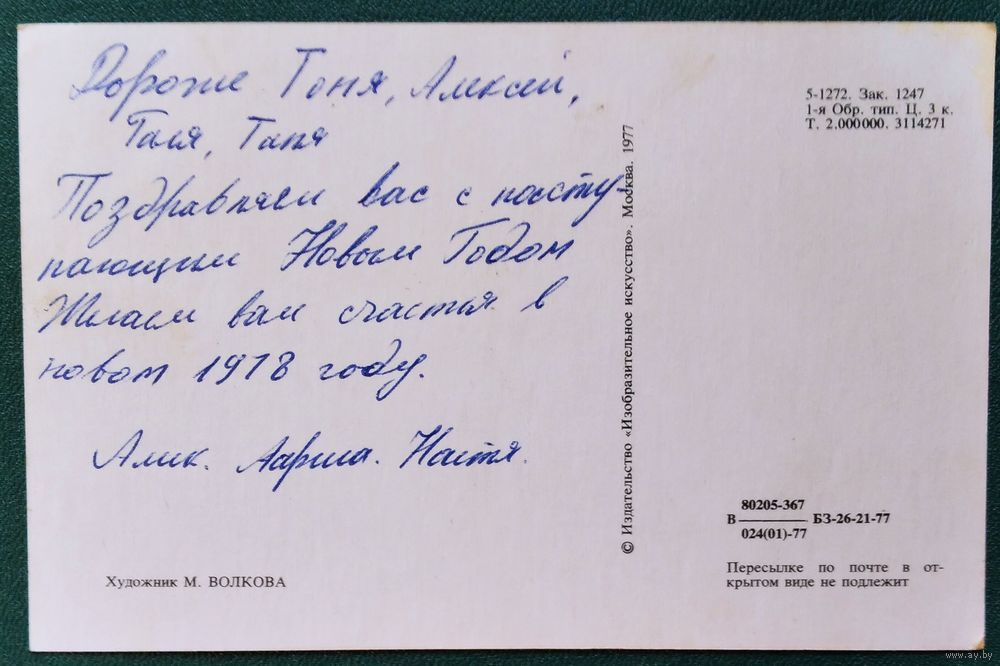 Дорогие Тоня, Алексей,
Галя, Таня
Поздравляем вас с насту-
пающим Новым Годом
Желаем вам счастья в
новом 1978 году.
Алик. Лариса. Настя.
Художник М. ВОЛКОВА
© Издательство «Изобразительное искусство». Москва. 1977
5-1272. Зак. 1247
1-я Обр. тип. Ц. 3 к.
Т. 2.000000. 3114271
80205-367
В БЗ-26-21-77
024(01)-77
Пересылке по почте в от-
крытом виде не подлежит
www.ay.by